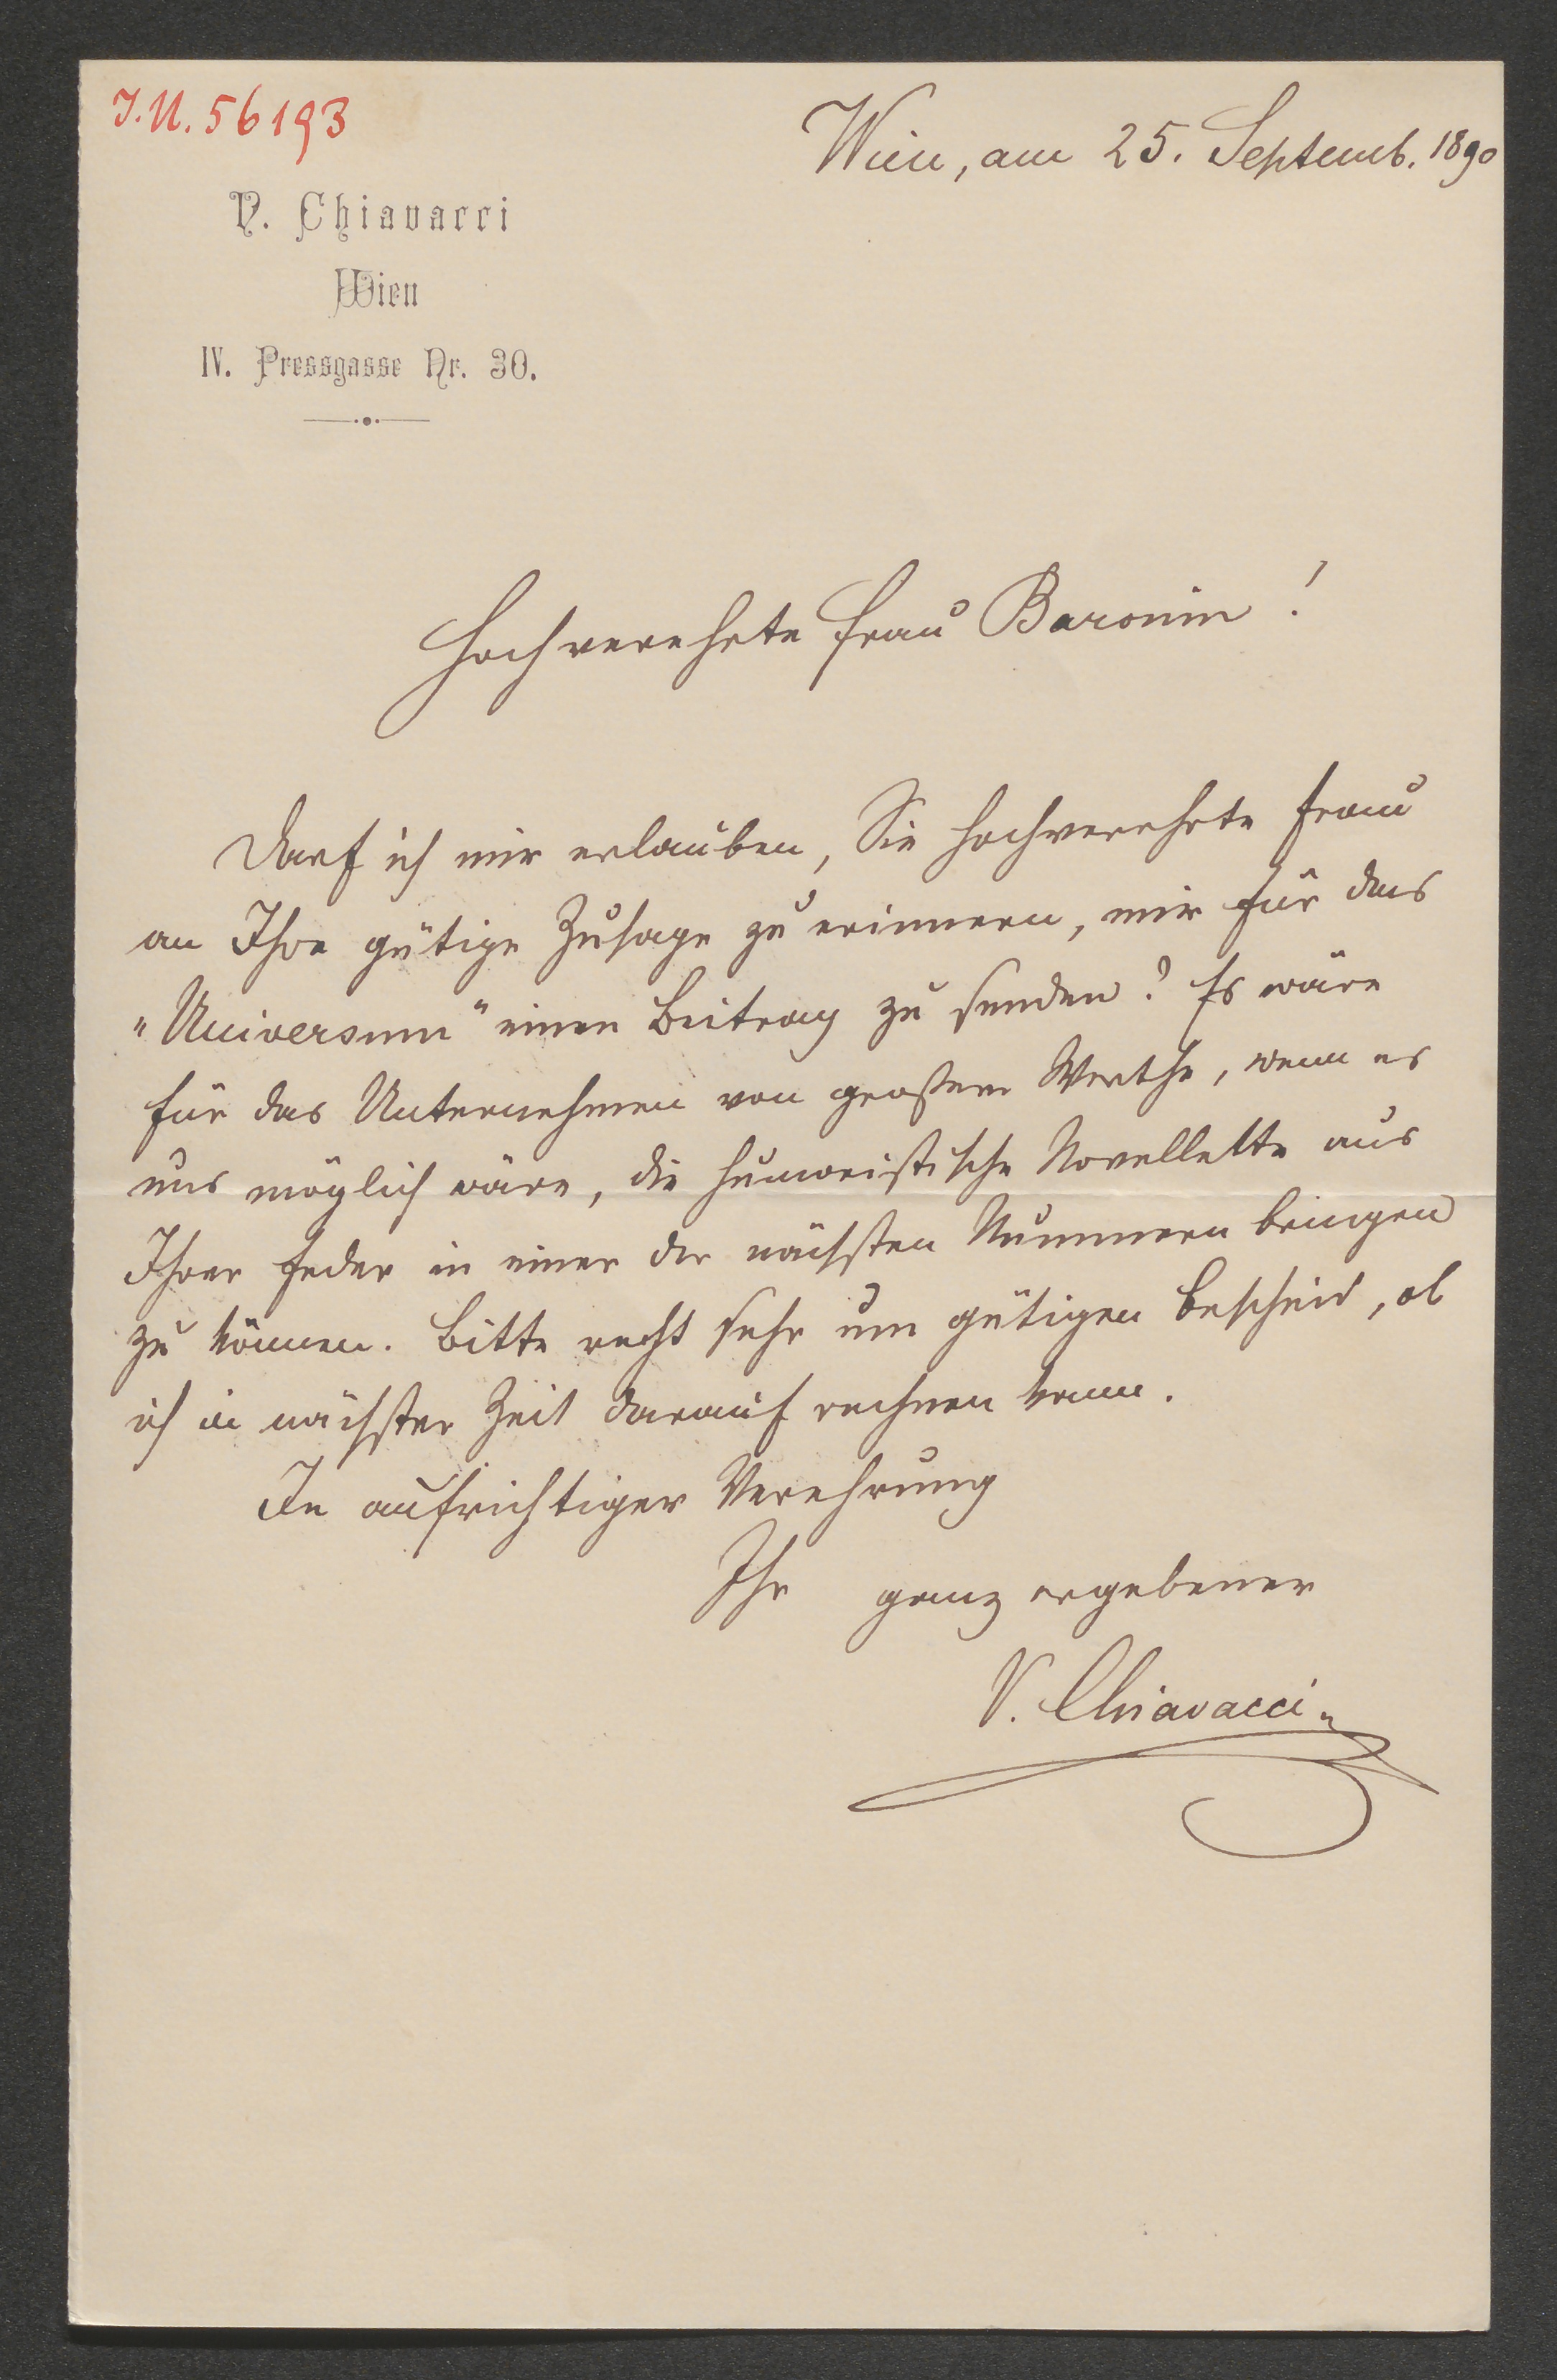 I.N. 56193
Wien, am 25. Septemb. 1890
V. Chiavacci
Wien
IV. Pressgasse Nr. 30.
Hochverehrte Frau Baronin!
Darf ich mir erlauben, Sie hochverehrte Frau
an Ihre gütige Zusage zu erinnern, mir für das
„Universum“ einen Beitrag zu senden? Es wäre
für das Unternehmen von großem Werthe, wenn es
uns möglich wäre, die humoristische Novellette aus
Ihrer Feder in einer der nächsten Nummern bringen
zu können. Bitte recht sehr um gütigen Bescheid, ob
ich in nächster Zeit darauf rechnen kann.
In aufrichtiger Verehrung
Ihr ganz ergebener
V. Chiavacci